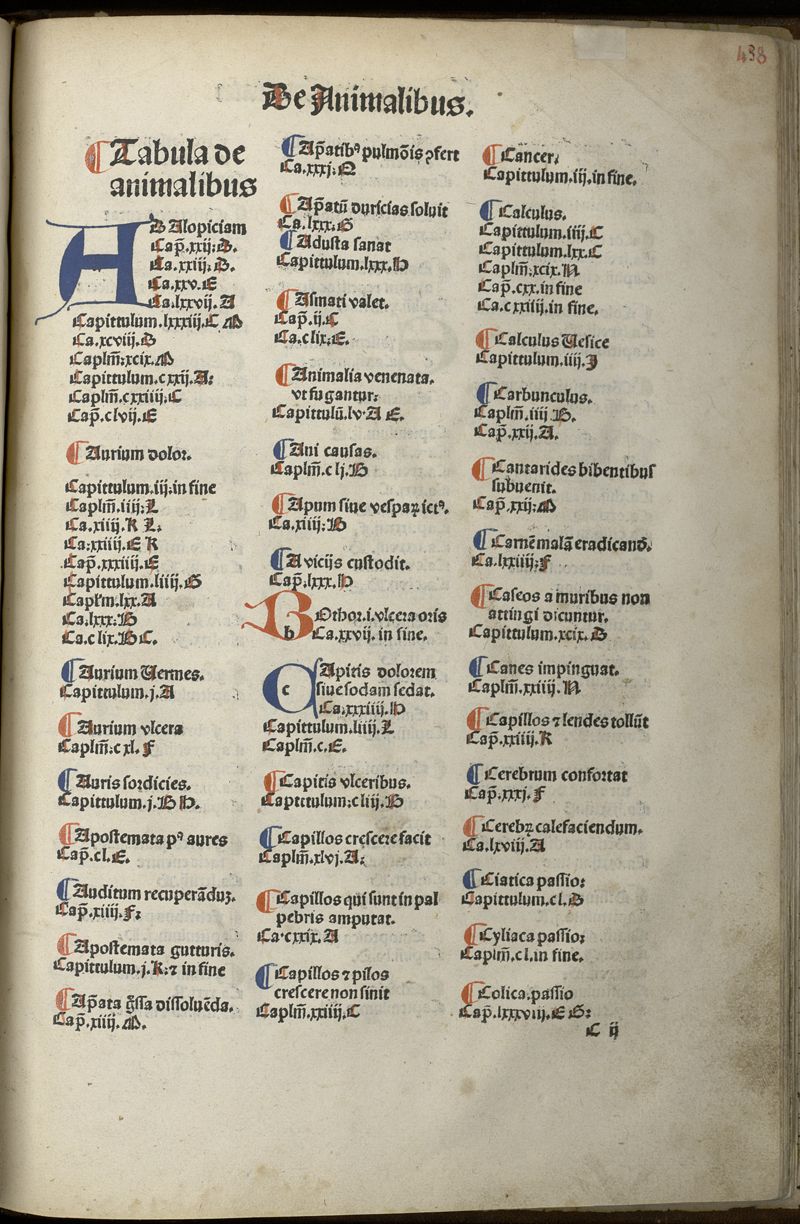 438
De Animalibus.
¶Tabula de
animalibus
AD Alopiciam
Cap̄.xxij:B.
Ca.xxiij.B.
Ca.xxv.E
Ca.lxxvij.A
Capittulum.lxxxiij.C M
Ca.xcviij.D
Caplm̄:xcix.M
Capittulum.cxxij.A:
Caplm̄.cxxiiij.C
Cap̄.clvij.E
¶Aurium dolor.
Capittulum.iij:in fine
Caplm̄.iiij:L
Ca.xiiij.K L.
Ca:xxiiij.E K
Cap̄.xxxiiij.E
Capittulum.liiij.G
Capl'm.lxx.A
Ca.lxxx.H
Ca.clix.H C.
¶Aurium Vermes.
Capittulum.j.A
¶Aurium vlcera
Caplm̄:cxl.f
¶Auris sordicies.
Capittulum.j.H D.
¶Apostemata pꝰ aures
Cap̄.cl.E.
¶Auditum recuperāduꝫ.
Cap̄.xiiij.f:
¶Apostemata gutturis.
Capittulum.j.K:⁊ in fine
¶Ap̄ata g̃ssa dissoluēda.
Cap̄.xiiij.M.
¶Ap̄atibꝰ pulmōis ꝯfert
Ca.xxxj:Q
¶Ap̄atū duricias soluit
Ca.lxxx:G
¶Adusta sanat
Capittulum.lxxx.D
¶Asmati valet.
Cap̄.ij.C
Ca.clix:E.
¶Animalia venenata.
vt fugantur:
Capittulū.lv.A E.
¶Ani causas.
Caplm̄.clj.H
¶Apum siue vespaꝝ ictꝰ.
Ca.xiiij:H
¶A vicijs custodit.
Cap̄.lxxx.D
b BOthor.i.vlcera oris
Ca.xxvij. in fine.
c CApitis dolorem
siue sodam sedat.
Ca.xxxiiij.D
Capittulum.liiij.L
Caplm̄.c.E.
¶Capitis vlceribus.
Capittulum:cliij.H
¶Capillos crescere facit
Caplm̄.xlvj.A:
¶Capillos qui sunt in pal
pebris amputat.
Ca.cxxix.A
¶Capillos ⁊ pilos
crescere non sinit
Caplm̄.xxiiij.C
¶Cancer:
Capittulum.iij.in fine.
¶Calculus.
Capittulum.iiij.C
Capittulum.lxx.C
Caplm̄:xcix.N
Cap̄.cxx.in fine
Ca.cxxiiij.in fine.
¶Calculus Vesice
Capittulum.iiij.J
¶Carbunculus.
Caplm̄.iiij H.
Cap̄.xxij.A.
¶Cantarides bibentibus
subuenit.
Cap̄.xxij:M
¶Carnē malā eradicand̄.
Ca.lxxiiij:f
¶Caseos a muribus non
attingi dicuntur.
Capittulum.xcix.B
¶Canes impinguat.
Caplm̄.xxiiij.N
¶Capillos ⁊ lendes tollūt
Cap̄.xxiiij.K
¶Cerebrum confortat
Cap̄.xxxj.f
¶Cerebꝝ calefaciendum.
Ca.lxviij.A
¶Ciatica passio:
Capittulum.cl.B
¶Cyliaca passio:
Caplm̄.cl.in fine.
¶Colica.passio
Cap̄.lxxxviij.E G:
C ij